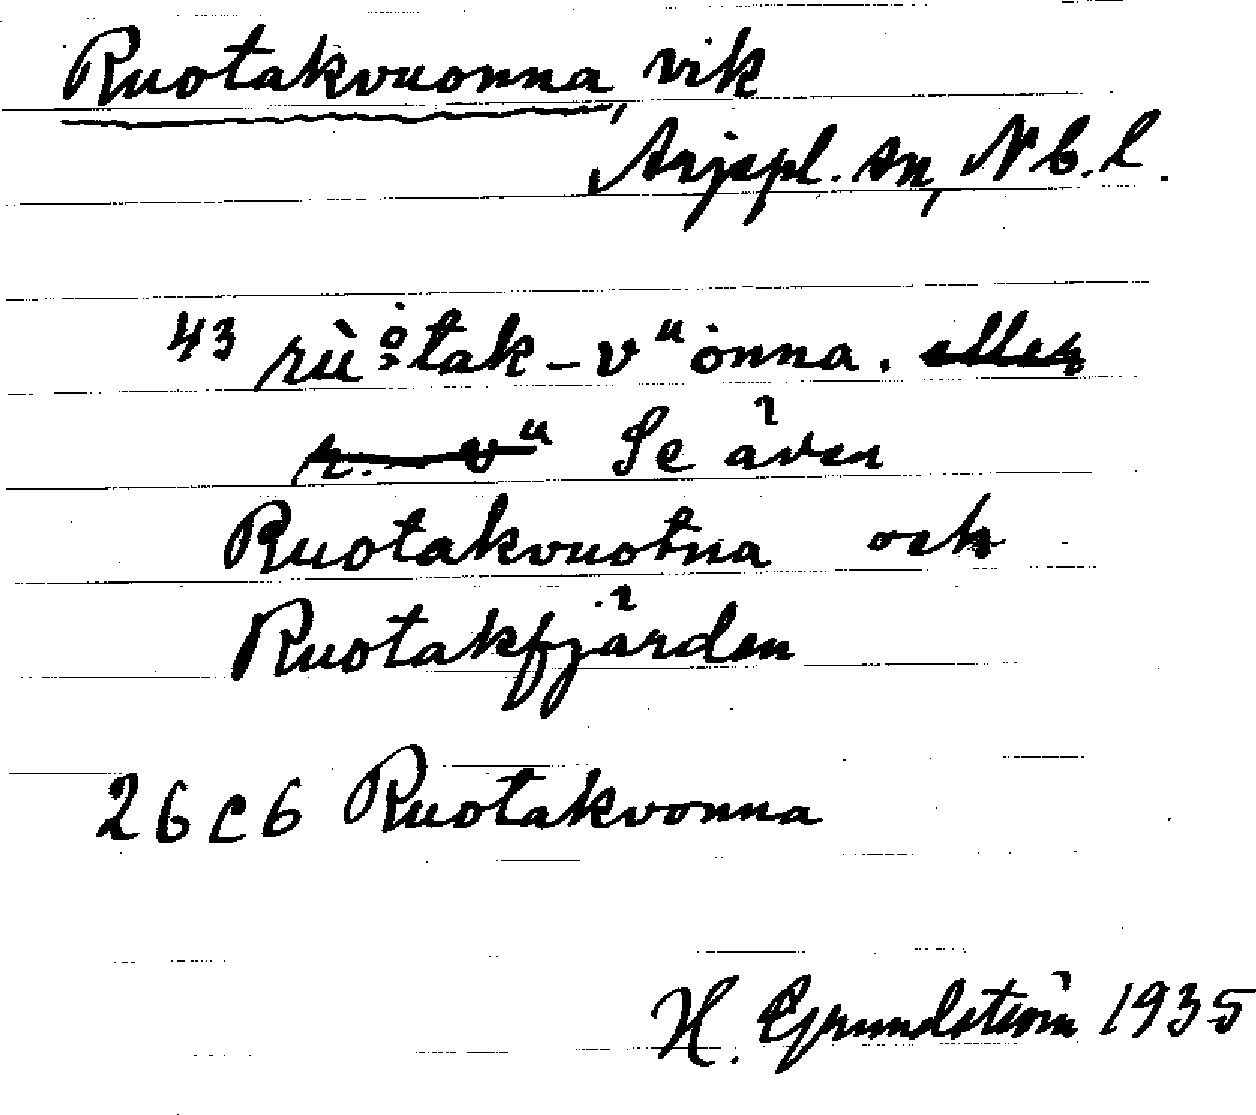 Ruotakvuonna, vik
Arjepl. sn, N.b.l.
43 rùo̥tak-vuȯnna. eller
r. - vu Se även
Ruotakvuotna och
Ruotakfjärden
26 C 6 Ruotakvonna
H. Grundström 1935